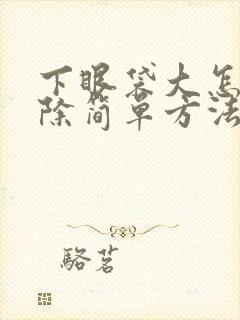 下眼袋大怎
除简单方法
骆茗